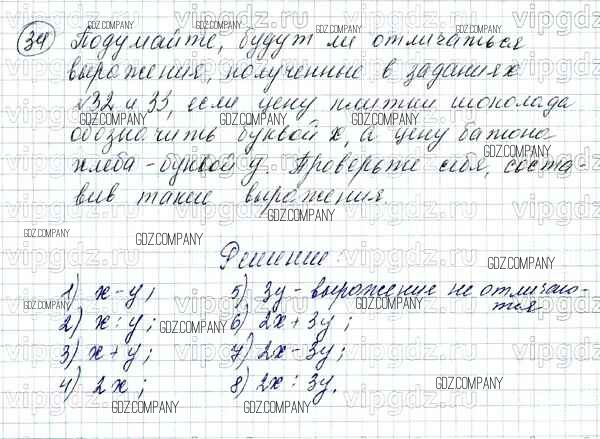 34 Подумайте, будут ли отличаться
выражения, полученные в заданиях
№32 и 33, если цену плитки шоколада
обозначить буквой x, а цену батона
хлеба - буквой y. Проверьте себя, соста-
вив такие выражения.
Решение:
1) x - y; 5) 3y - выражение не отличаю-
тся
2) x : y; 6) 2x + 3y;
3) x + y; 7) 2x - 3y;
4) 2x; 8) 2x : 3y.
vipgdz.ru
GDZ.COMPANY